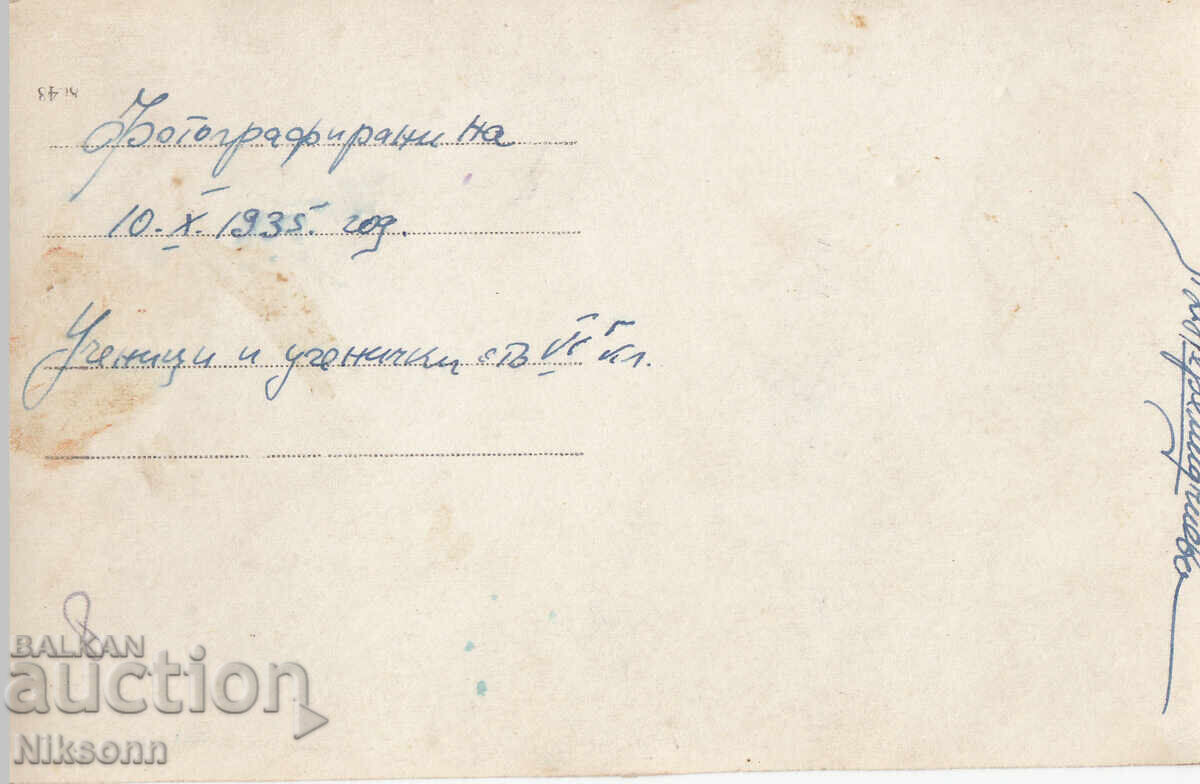 Фотографирани на
10.X.1935 год.
Ученици и ученички отъ VII кл.
BALKAN
auction
Niksonn